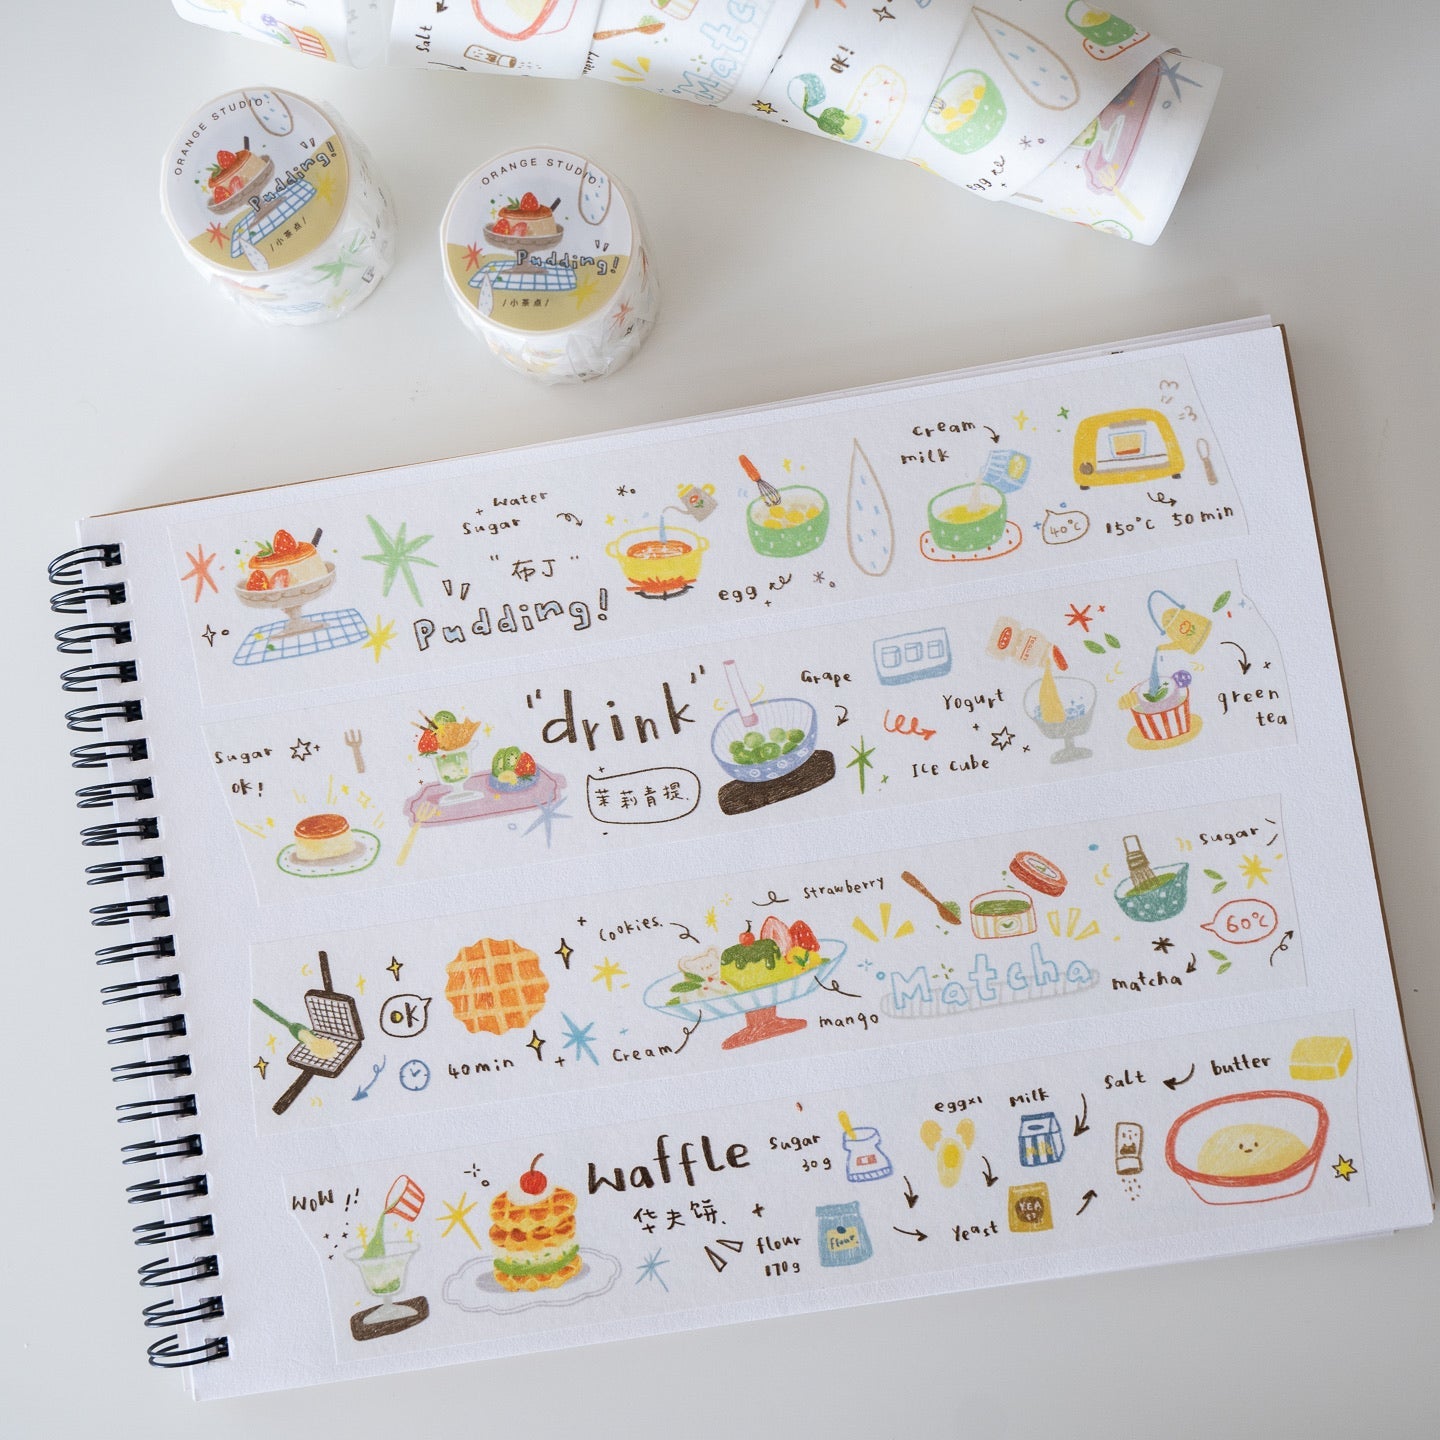 Salt
Matc
OK!
egg
ORANGE STUDIO
Pudding!
/小茶点/
ORANGE STUDIO
Pudding!
/小茶点/
water
+ Sugar
"布丁"
Pudding!
egg
cream
milk
40°C
150°C 50min
Sugar
OK!
"drink"
茉莉青提.
Grape
Yogurt
Ice cube
green
tea
OK
40min
Cookies.
Strawberry
Cream
mango
Matcha
matcha
Sugar
60°C
WOW!!
waffle
华夫饼.
flour
170g
Sugar
30g
flour
eggx1
Milk
Yeast
YEA
ST
Salt
butter